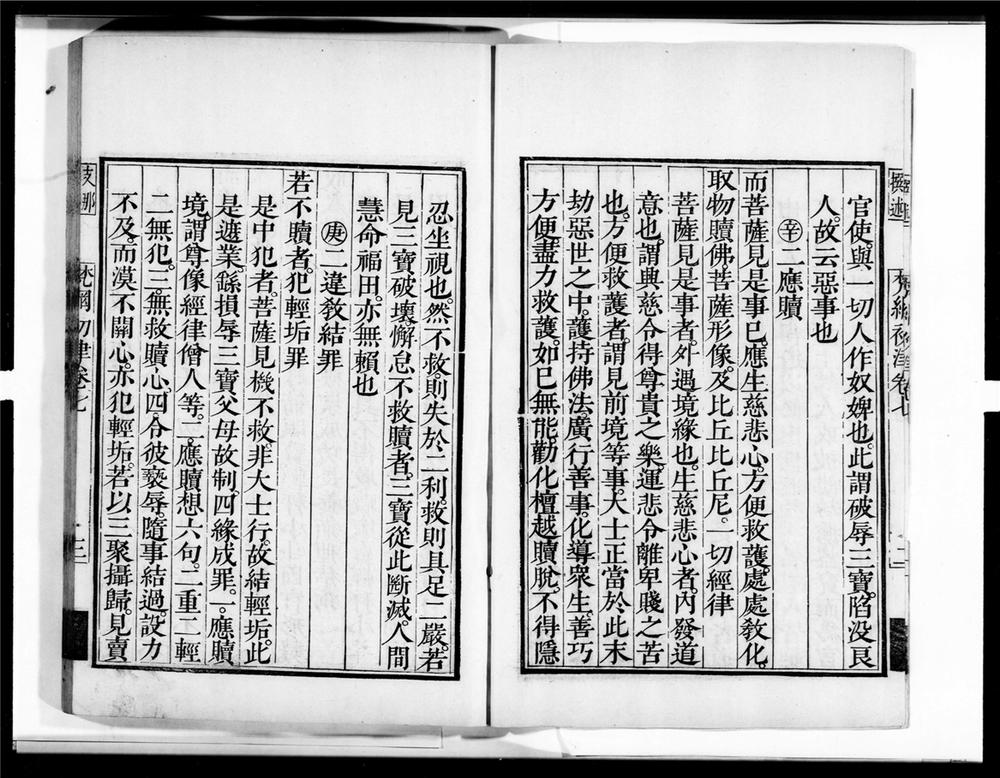 官使。與一切人作奴婢也。此謂破辱三寶。陷没良
人。故云惡事也
辛二應贖
而菩薩見是事已。應生慈悲心。方便救護。處處敎化。
取物贖佛菩薩形像。及比丘比丘尼。一切經律
菩薩見是事者。外遇境緣也。生慈悲心者。內發道
意也。謂興慈令得尊貴之樂。運悲令離卑賤之苦
也。方便救護者。謂見前境等事。大士正當於此末
劫惡世之中。護持佛法。廣行善事。化導衆生。善巧
方便。盡力救護。如已無能。勸化檀越贖脫。不得隱
忍坐視也。然不救則失於二利。救則具足二嚴。若
見三寶破壞。懈怠不救贖者。三寶從此斷滅。人間
慧命福田。亦無賴也
庚二違敎結罪
若不贖者。犯輕垢罪
是中犯者。菩薩見機不救。非大士行。故結輕垢。此
是遮業。繇損辱三寶父母故制。四緣成罪。一。應贖
境。謂尊像經律僧人等。二。應贖想。六句。二重。二輕
二無犯。三。無救贖心。四。令彼褻辱。隨事結過。設力
不及。而漠不關心。亦犯輕垢。若以三聚攝歸。見賣